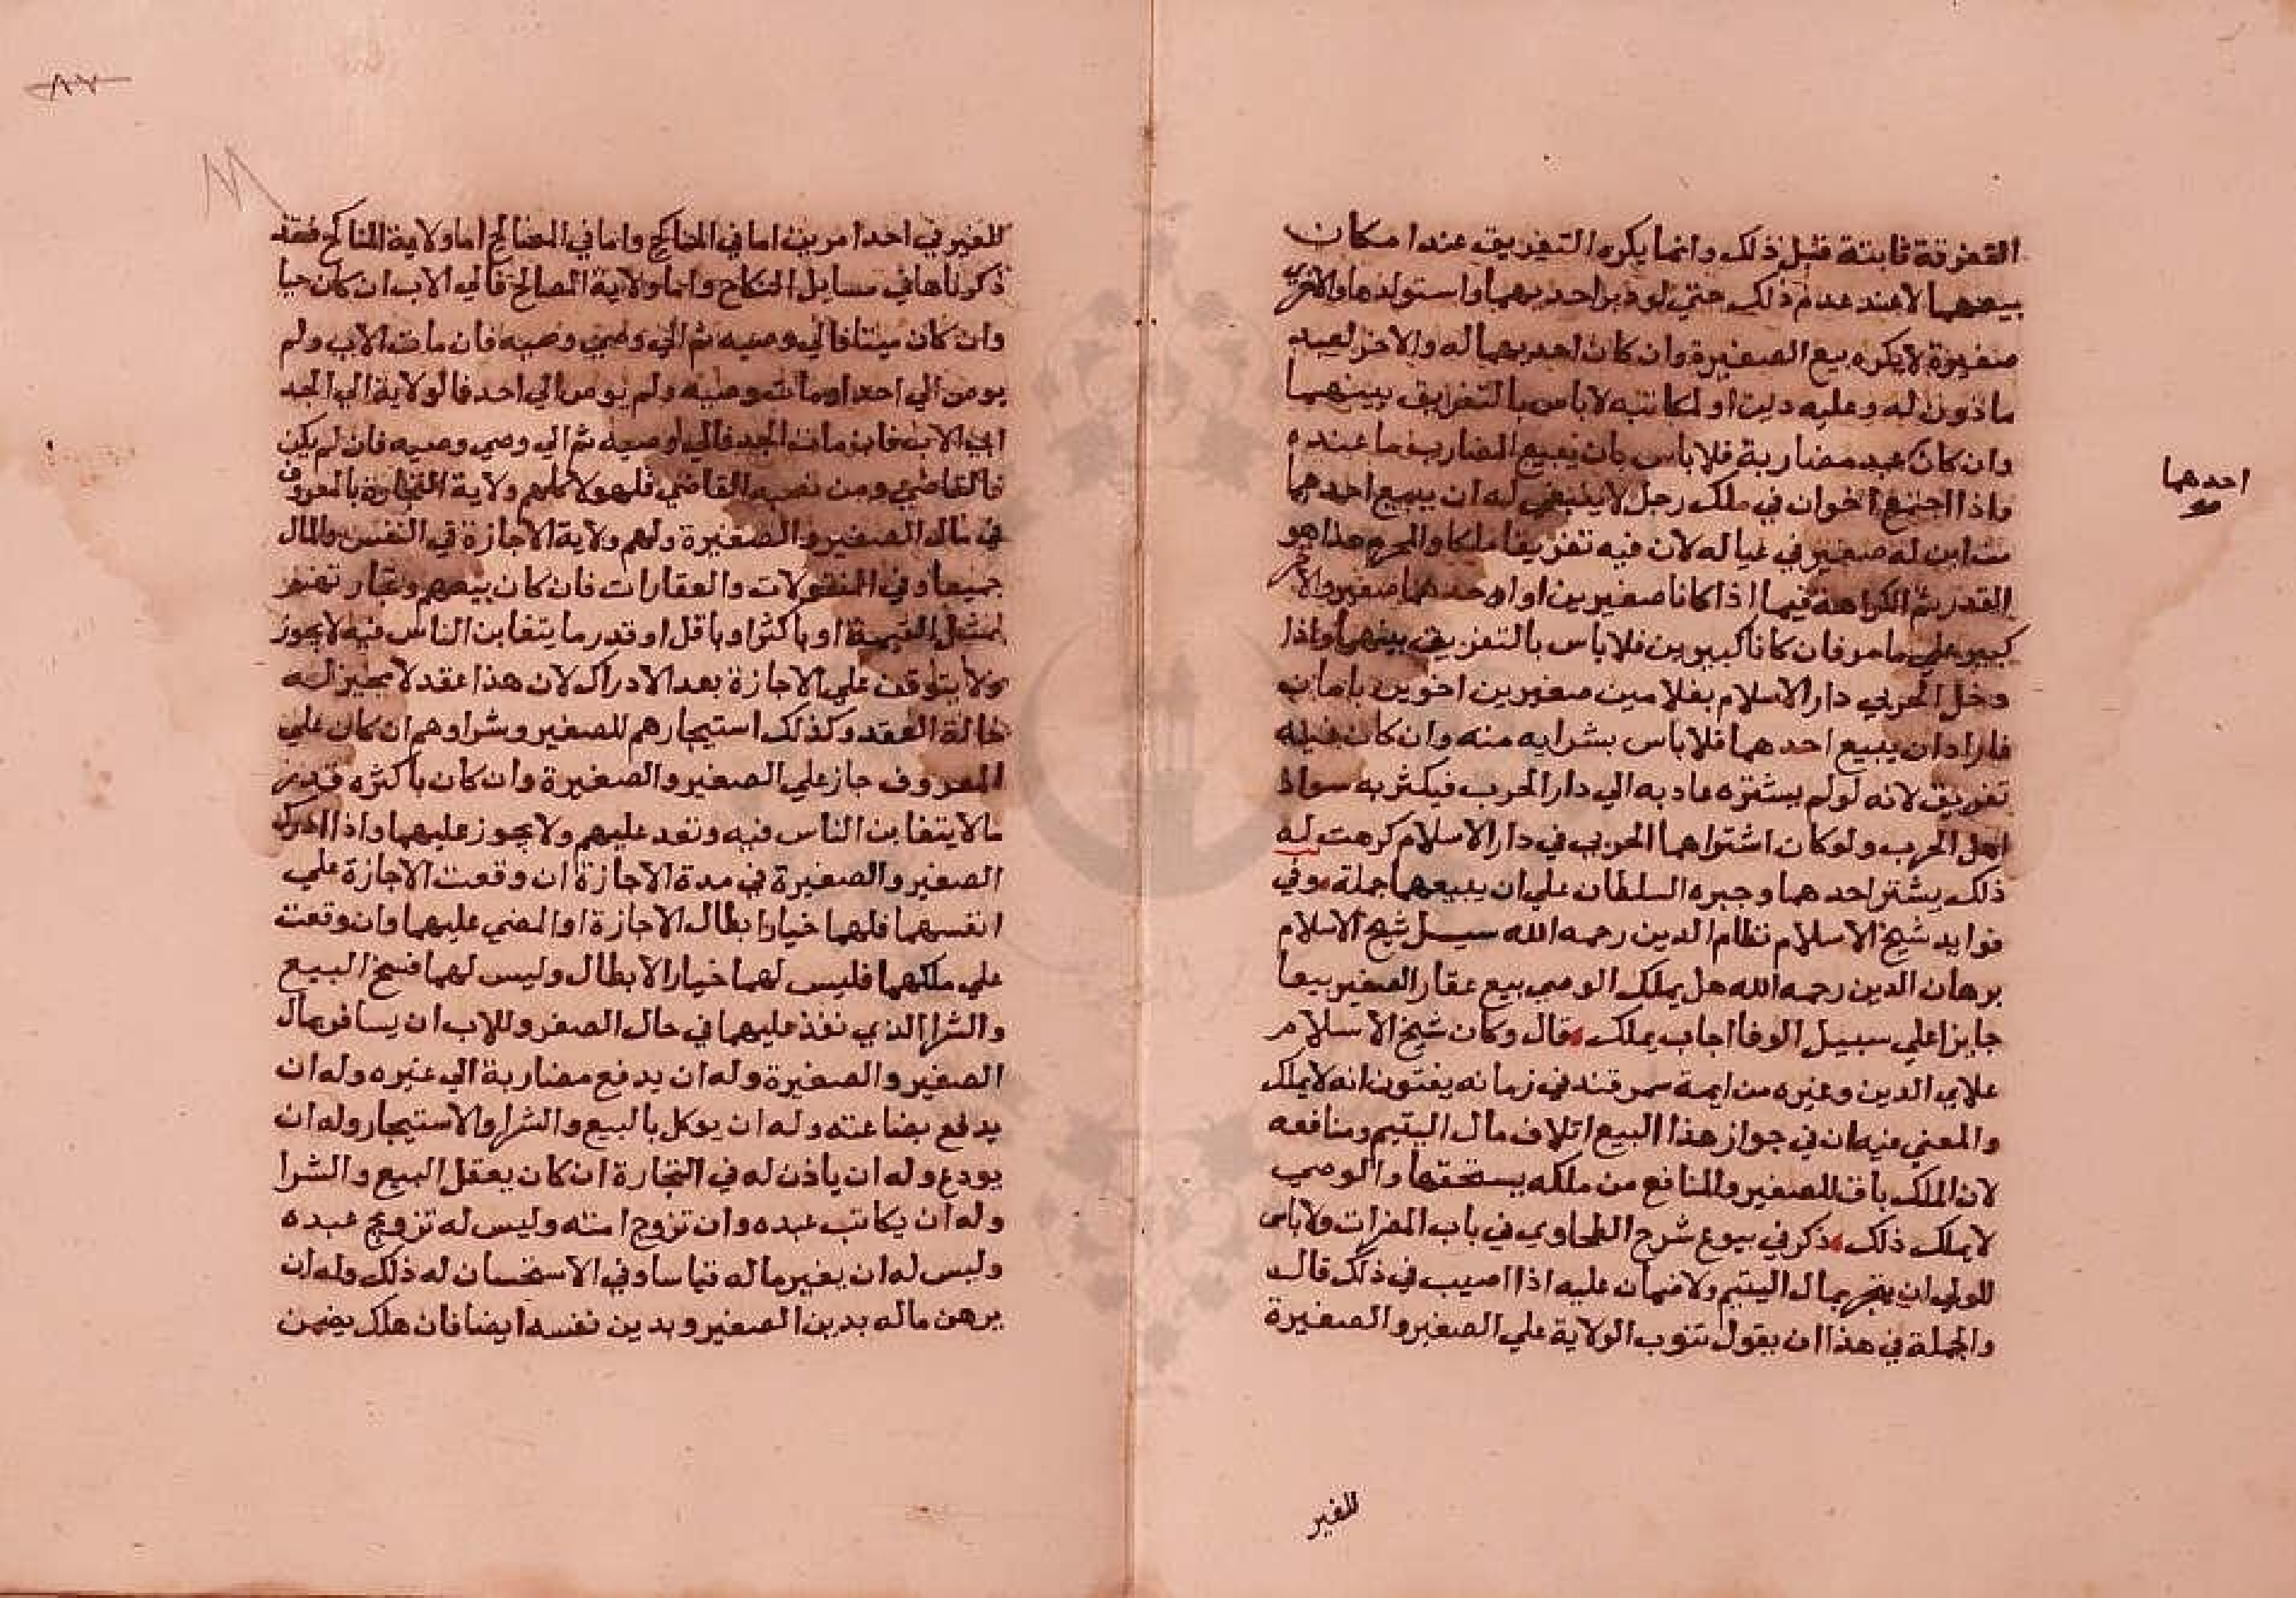 التفرقة ثابتة قبل ذلك وانما يكره التفريق عند امكان
بيعهما لا عند عدم ذلك حتي لو دبر احديهما او استولدها والاخري
صغيرة لا يكره بيع الصغيرة وان كان احديهما له والاخر لعبد
ماذون له وعليه دين او لمكاتبه لا باس بالتفريق بينهما
وان كان عبد مضاربة فلا باس بان يبيع المضارب ما عنده
واذا اجتمع اخوان في ملك رجل لا ينبغي له ان يبيع احدهما
من ابن له صغير في عياله لان فيه تفريقا ملكا والمحرم هذا هو
القدر ثم الكراهة فيما اذا كانا صغيرين او احدهما صغير والاخر
كبير علي ما مر فان كانا كبيرين فلا باس بالتفريق بينهما واذا
دخل الحربي دار الاسلام بغلامين صغيرين اخوين بامان
فاراد ان يبيع احدهما فلا باس بشرايه منه وان كان فيه
تفريق لانه لو لم يشتره عاد به الي دار الحرب فيكثر به سواد
اهل الحرب ولو كان اشتراهما الحربي في دار الاسلام كرهت له
ذلك يشتر احدهما وجبره السلطان علي ان يبيعهما جملة وفي
فوايد شيخ الاسلام نظام الدين رحمه الله سيل شيخ الاسلام
برهان الدين رحمه الله هل يملك الوصي بيع عقار الصغير بيعا
جايزا علي سبيل الوفا اجاب يملك قال وكان شيخ الاسلام
علاي الدين وغيره من ايمة سمرقند في زمانه يفتون انه لا يملك
والمعني فيه ان في جواز هذا البيع اتلاف مال اليتيم ومنافعه
لان الملك باق للصغير والمنافع من ملكه يستحقها والوصي
لا يملك ذلك ذكر في بيوع شرح الطحاوي في باب المصراة ولا باس
للولي ان يتجر بمال اليتيم ولا ضمان عليه اذا اصيب في ذلك قال
والجملة في هذا ان يقول تنوب الولاية علي الصغير والصغيرة
احدهما
للغير
للغير في احد امرين اما في المناكح واما في المصالح اما ولاية المناكح فقد
ذكرناها في مسايل النكاح واما ولاية المصالح فالي الاب ان كان حيا
وان كان ميتا فالي وصيه ثم الي وصي وصيه فان مات الاب ولم
يوص الي احد او مات وصيه ولم يوص الي احد فالولاية الي الجد
ابي الاب فان مات الجد فالي وصيه ثم الي وصي وصيه فان لم يكن
فالقاضي ومن نصبه القاضي فلهولا كلهم ولاية التجارة بالمعروف
في مال الصغير والصغيرة ولهم ولاية الاجازة في النفس والمال
جميعا وفي المنقولات والعقارات فان كان بيعهم وعقارتهم
بمثل القيمة او باكثر او باقل او قدر ما يتغابن الناس فيه لا يجوز
ولا يتوقف علي الاجازة بعد الادراك لان هذا عقد لا مجيز له
حالة العقد وكذلك استيجارهم للصغير وشراوهم ان كان علي
المعروف جاز علي الصغير والصغيرة وان كان باكثره قدر
ما لا يتغابن الناس فيه ونفد عليهم ولا يجوز عليهما واذا ادرك
الصغير والصغيرة في مدة الاجازة ان وقعت الاجازة علي
انفسهما فلهما خيار ابطال الاجازة او المضي عليهما وان وقعت
علي ملكهما فليس لهما خيار الابطال وليس لهما فسخ البيع
والشرا الذي نفذ عليهما في حال الصغر وللاب ان يسافر بمال
الصغير والصغيرة وله ان يدفع مضاربة الي غيره وله ان
يدفع بضاعته وله ان يوكل بالبيع والشرا والاستيجار وله ان
يودع وله ان ياذن له في التجارة ان كان يعقل البيع والشرا
وله ان يكاتب عبده وان تزوج امته وليس له تزويج عبده
وليس له ان يعير ماله قياسا وفي الاستحسان له ذلك وله ان
يرهن ماله بدين الصغير وبدين نفسه ايضا فان هلك يضمن